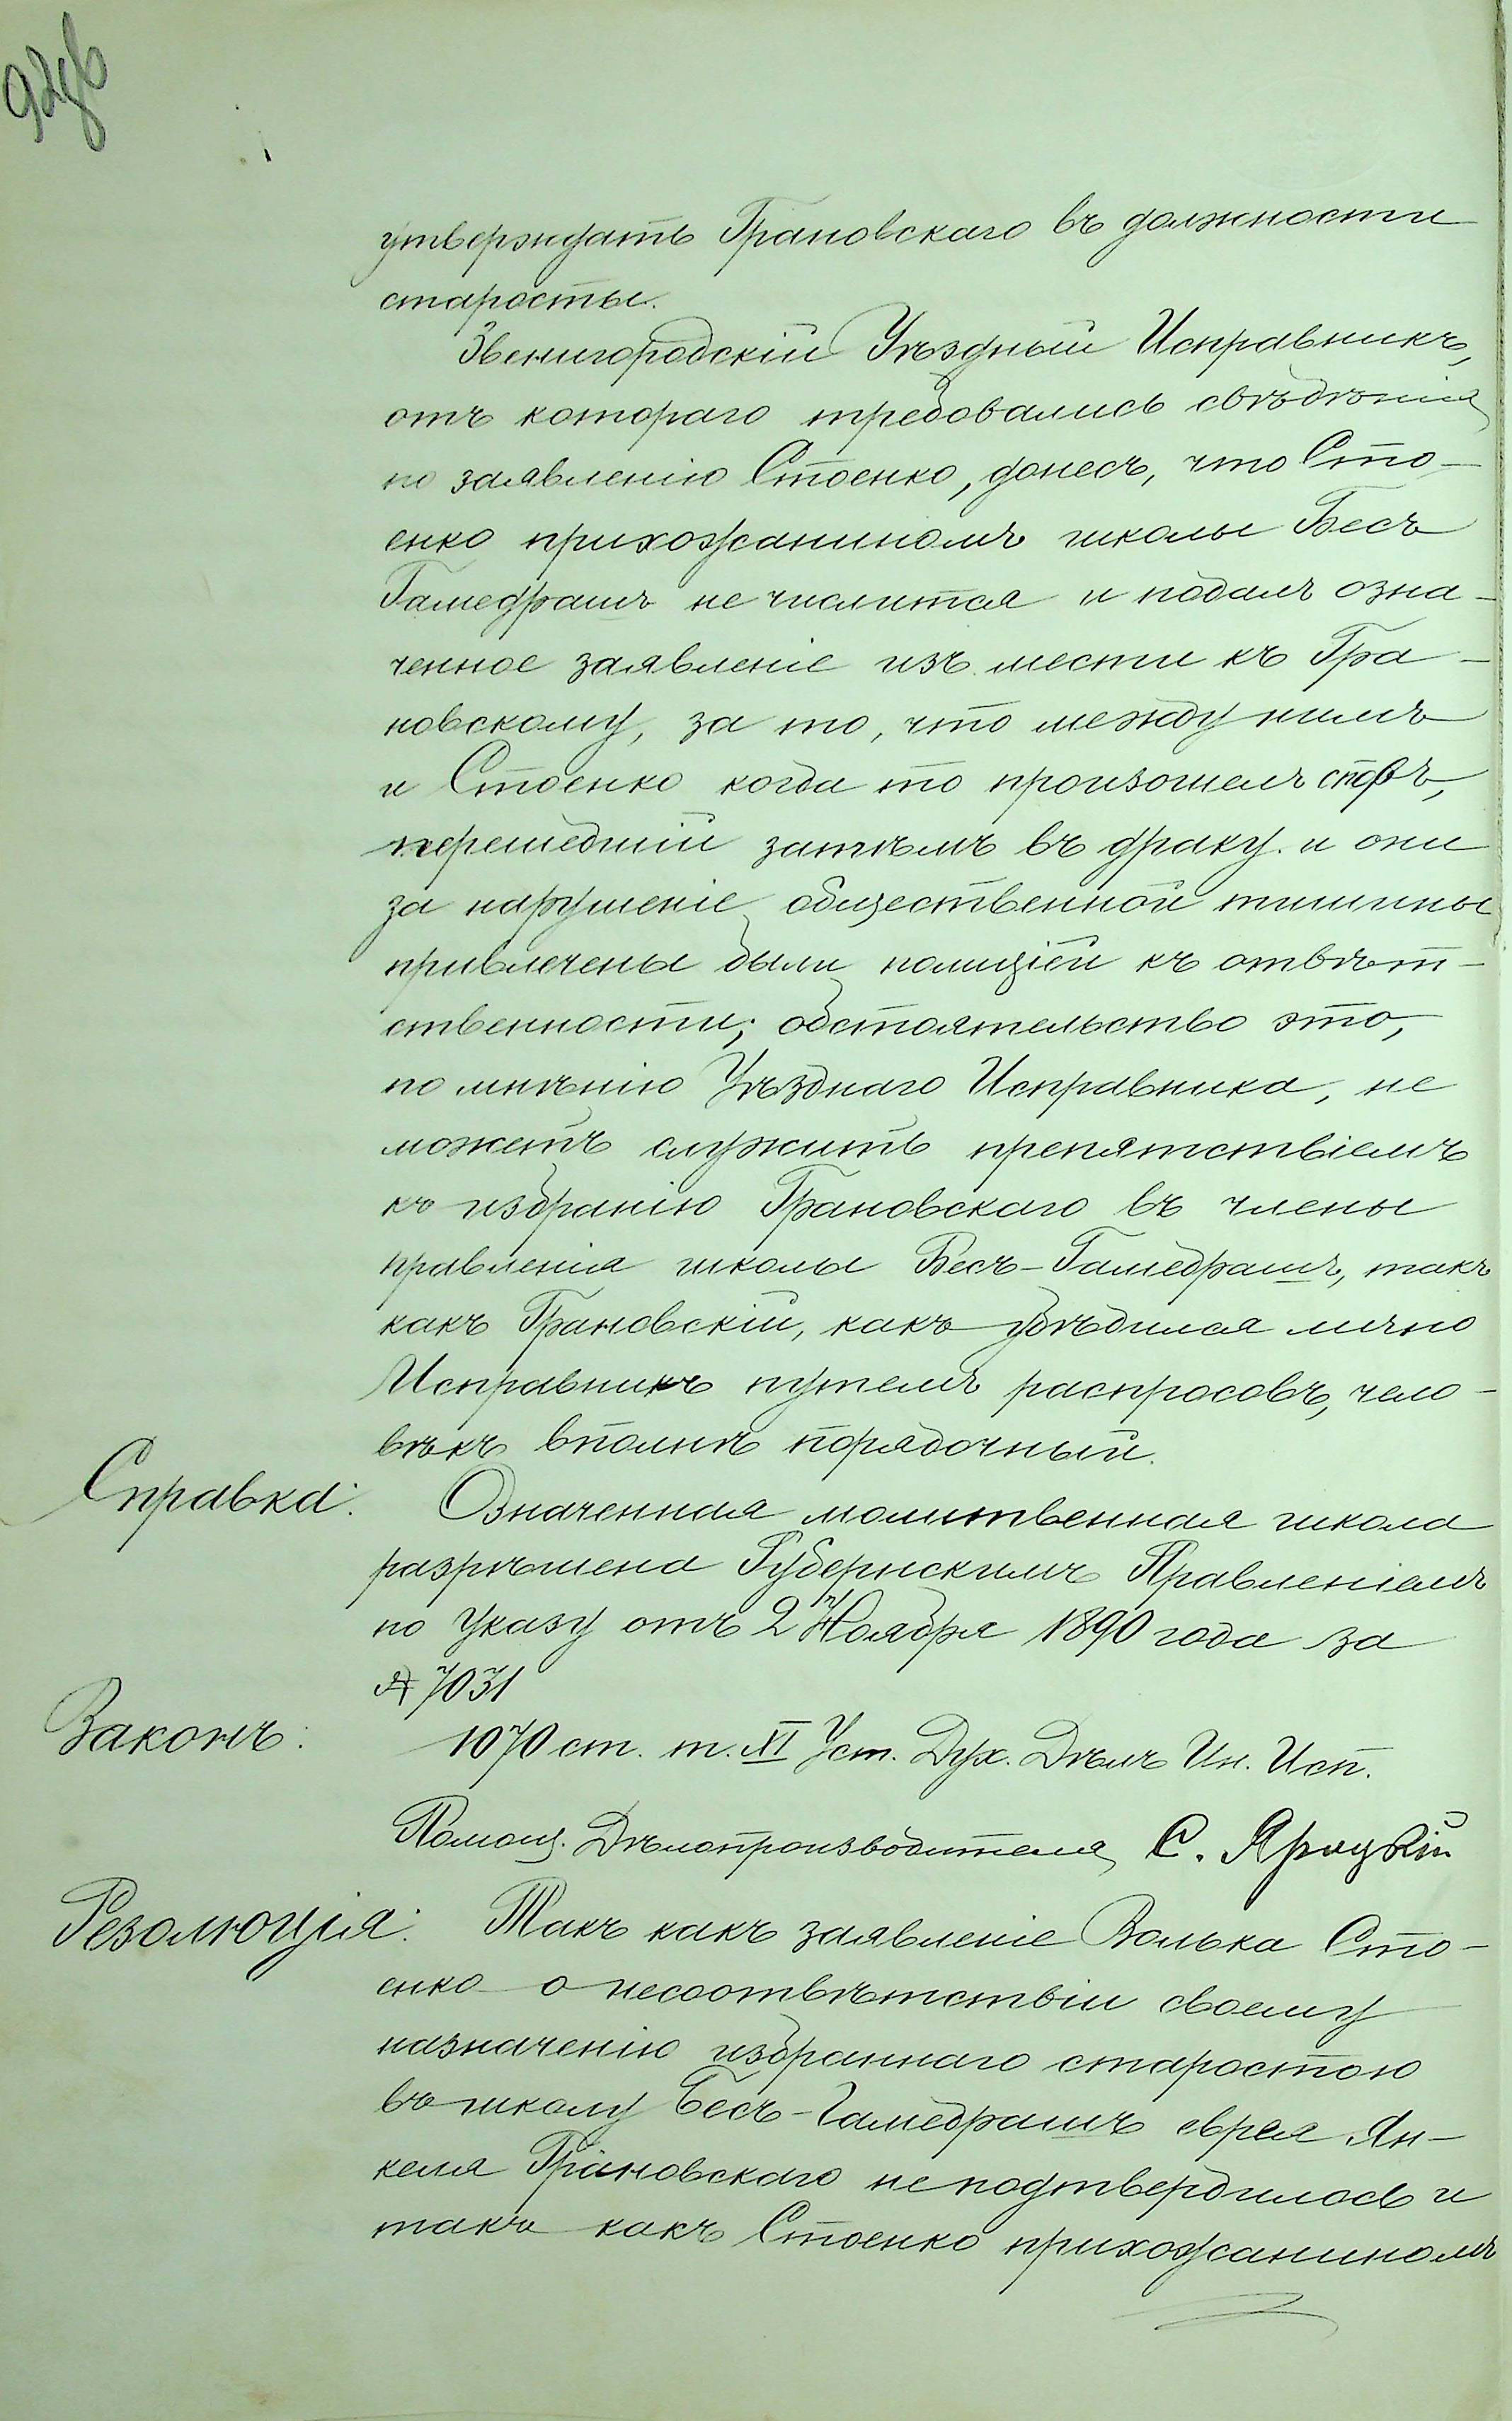 утверждать Грановскаго въ должности
старосты.
Звенигородскій Уѣздный Исправникъ,
отъ котораго требовались свѣдѣнія
по заявленію Стоенко, донесъ, что Сто-
енко прихожаниномъ школы Бесъ
Гамедрашъ не числится и подалъ озна-
ченное заявленіе изъ мести къ Гра-
новскому, за то, что между нимъ
и Стоенко когда то произошелъ споръ,
перешедшій затѣмъ въ драку и они
за нарушеніе общественной тишины
привлечены были полиціей къ отвѣт-
ственности; обстоятельство это,
по мнѣнію Уѣзднаго Исправника, не
можетъ служить препятствіемъ
къ избранію Грановскаго въ члены
правленія школы Бесъ-Гамедрашъ, такъ
какъ Грановскій, какъ убѣдился лично
Исправникъ путемъ распросовъ, чело-
вѣкъ вполнѣ порядочный.
Справка: Означенная молитвенная школа
разрѣшена Губернскимъ Правленіемъ
по указу отъ 2 Ноября 1890 года за
№ 7031
Законъ: 1070 ст. т. XI Уст. Дух. Дѣлъ Ин. Исп.
Помощ. Дѣлопроизводителя С. Яроцкій
Резолюція: Такъ какъ заявленіе Волька Сто-
енко о несоотвѣтствіи своему
назначенію избраннаго старостою
въ школу Бесъ-Гамедрашъ еврея Ян-
келя Грановскаго не подтвердилось и
такъ какъ Стоенко прихожаниномъ